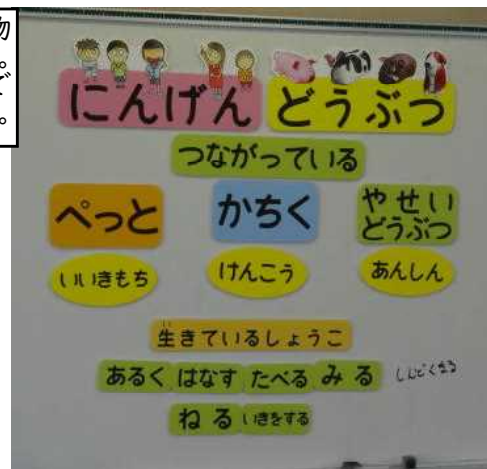 物
。
ど
。
にんげん どうぶつ
つながっている
ぺっと かちく やせい
どうぶつ
いいきもち けんこう あんしん
生きているしょうこ
い
あるく はなす たべる みる
ねる いきをする